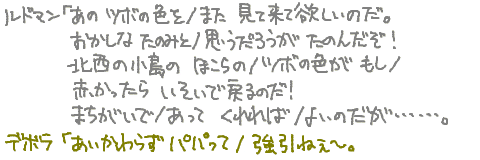 ルドマン「あの ツボの色を/また 見て来て欲しいのだ。
おかしな たのみと/思うだろうが たのんだぞ!
北西の小島の ほこらの/ツボの色が もし/
赤かったら いそいで戻るのだ!
まちがいで/あって くれれば/よいのだが……。
デボラ「あいかわらず パパって/強引ねぇ~。